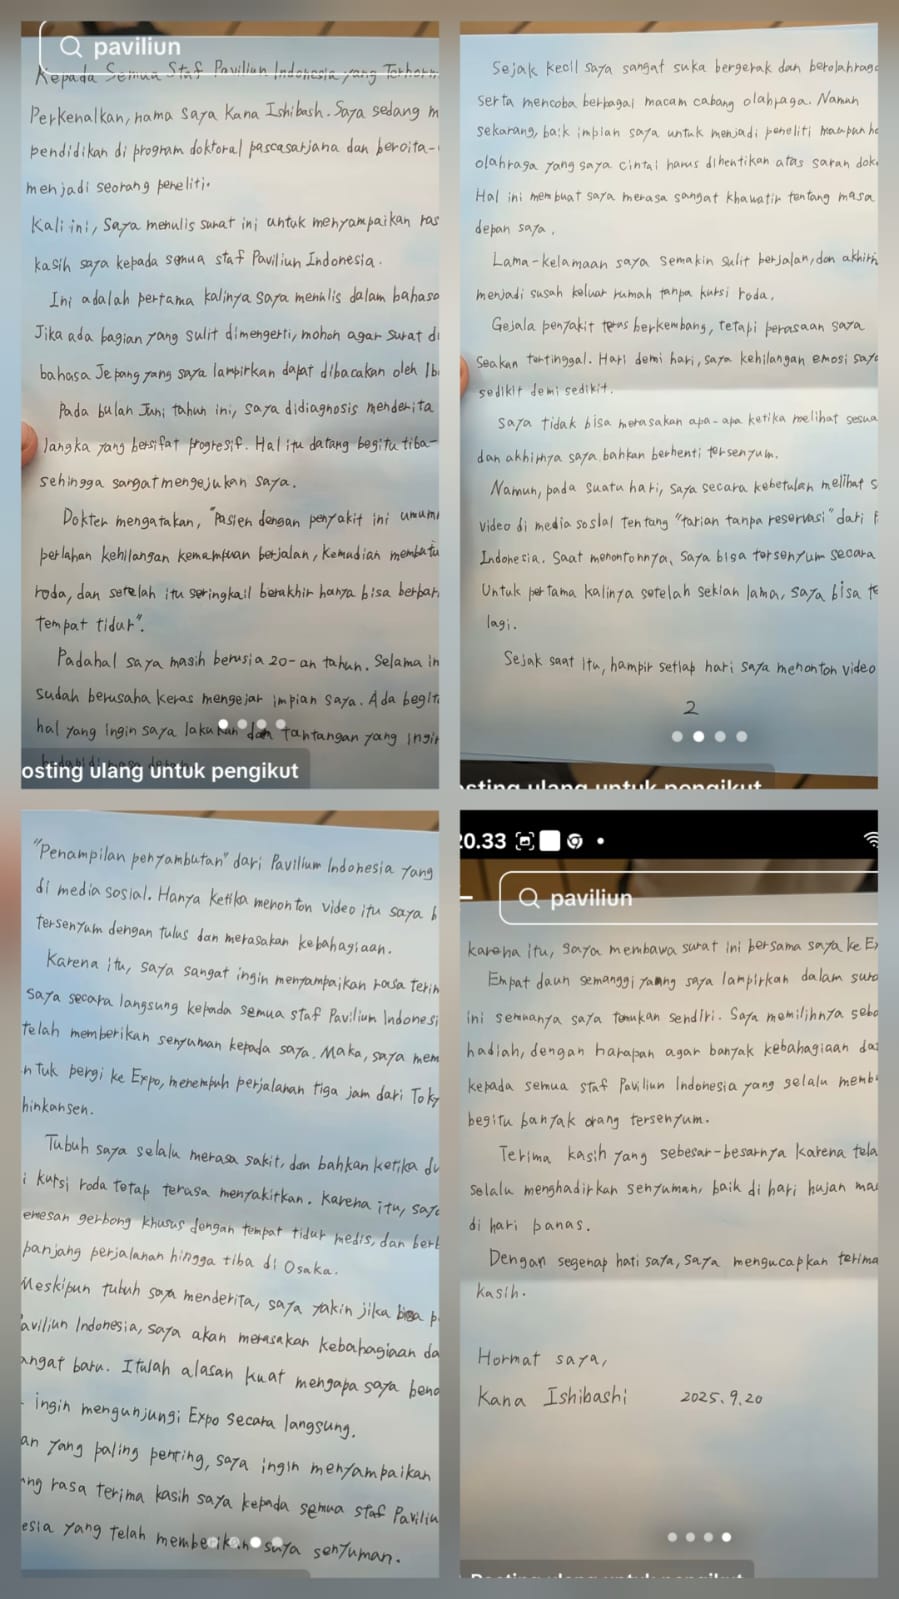 paviliun
Kepada Semua Staf Paviliun Indonesia yang
Perkenalkan, nama saya Kana Ishibash. Saya sedang
pendidikan di program doktoral pascasarjana dan bercita-
menjadi seorang peneliti.
Kali ini, saya menulis surat ini untuk menyampaikan
kasih saya kepada semua staf Paviliun Indonesia.
Ini adalah pertama kalinya saya menulis dalam
Jika ada bagian yang sulit dimengerti, mohon agar surat
bahasa Jepang yang saya lampirkan dapat dibacakan oleh
Pada bulan Juni tahun ini, saya didiagnosis menderita
langka yang bersifat progresif. Hal itu datang begitu tiba-
sehingga sangat mengejukan saya.
Dokter mengatakan, "Pasien dengan penyakit ini
perlahan kehilangan kemampuan berjalan, kemudian
roda, dan setelah itu seringkali berakhir hanya bisa
tempat tidur".
Padahal saya masih berusia 20-an tahun. Selama
sudah berusaha keras mengejar impian saya. Ada
hal yang ingin saya lakukan dan tantangan yang
osting ulang untuk pengikut
Sejak kecil saya sangat suka bergerak dan
serta mencoba berbagai macam cabang olahraga. Namun
sekarang, baik impian saya untuk menjadi peneliti maupun
olahraga yang saya cintai harus dihentikan atas saran
Hal ini membuat saya merasa sangat khawatir tentang masa
depan saya.
Lama-kelamaan saya semakin sulit berjalan, dan
menjadi susah keluar rumah tanpa kursi roda.
Gejala penyakit terus berkembang, tetapi perasaan saya
seakan tertinggal. Hari demi hari, saya kehilangan emosi
sedikit demi sedikit.
Saya tidak bisa merasakan apa-apa ketika melihat
dan akhirnya saya bahkan berhenti tersenyum.
Namun, pada suatu hari, saya secara kebetulan melihat
video di media sosial tentang "tarian tanpa reservasi" dari
Indonesia. Saat menontonnya, saya bisa tersenyum secara
Untuk pertama kalinya setelah sekian lama, saya bisa
lagi.
Sejak saat itu, hampir setiap hari saya menonton video
2
"Penampilan penyambutan" dari Pavilium Indonesia yang
di media sosial. Hanya ketika menonton video itu saya
tersenyum dengan tulus dan merasakan kebahagiaan.
Karena itu, saya sangat ingin menyampaikan rasa
saya secara langsung kepada semua staf Pavilium
telah memberikan senyuman kepada saya. Maka, saya
ntuk pergi ke Expo, menempuh perjalanan tiga jam dari
hinkansen.
Tubuh saya selalu merasa sakit, dan bahkan ketika
i kursi roda tetap terasa menyakitkan. Karena itu,
emesan gerbong khusus dengan tempat tidur medis, dan
panjang perjalanan hingga tiba di Osaka.
Meskipun tubuh saya menderita, saya yakin jika bisa
aviliun Indonesia, saya akan merasakan kebahagiaan
angat baru. Itulah alasan kuat mengapa saya
ingin mengunjungi Expo secara langsung.
an yang paling penting, saya ingin menyampaikan
ng rasa terima kasih saya kepada semua staf
esia yang telah memberikan saya senyuman.
0.33
paviliun
karena itu, saya membawa surat ini bersama saya ke
Empat daun semanggi yang saya lampirkan dalam
ini semuanya saya temukan sendiri. Saya memilihnya
hadiah, dengan harapan agar banyak kebahagiaan
kepada semua staf Paviliun Indonesia yang selalu
begitu banyak orang tersenyum.
Terima kasih yang sebesar-besarnya karena
selalu menghadirkan senyuman, baik di hari hujan
di hari panas.
Dengan segenap hati saya, saya mengucapkan terima
kasih.
Hormat saya,
Kana Ishibashi 2025.9.20